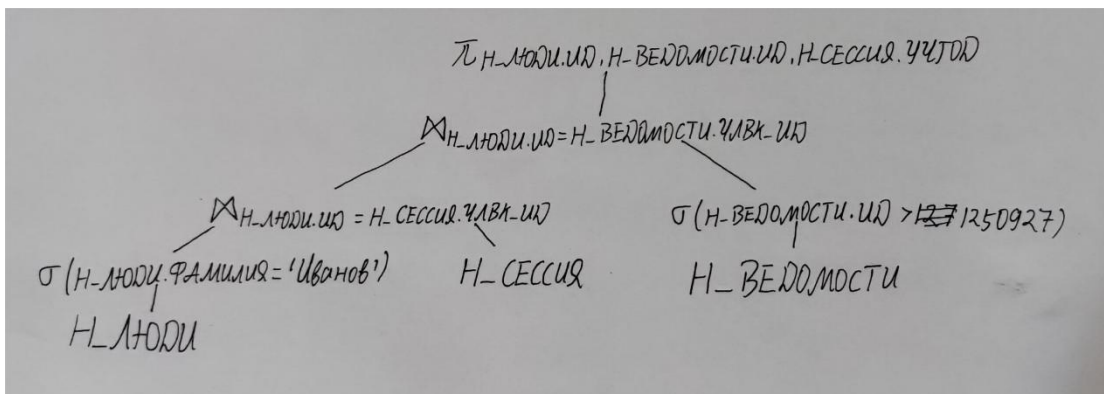 π Н_ЛЮДИ.ИД, Н_ВЕДОМОСТИ.ИД, Н_СЕССИЯ.УЧГОД
⋈ Н_ЛЮДИ.ИД = Н_ВЕДОМОСТИ.ЧЛВК_ИД
⋈ Н_ЛЮДИ.ИД = Н_СЕССИЯ.ЧЛВК_ИД
σ (Н_ВЕДОМОСТИ.ИД > 1250927)
σ (Н_ЛЮДИ.ФАМИЛИЯ = 'Иванов')
Н_СЕССИЯ
Н_ВЕДОМОСТИ
Н_ЛЮДИ